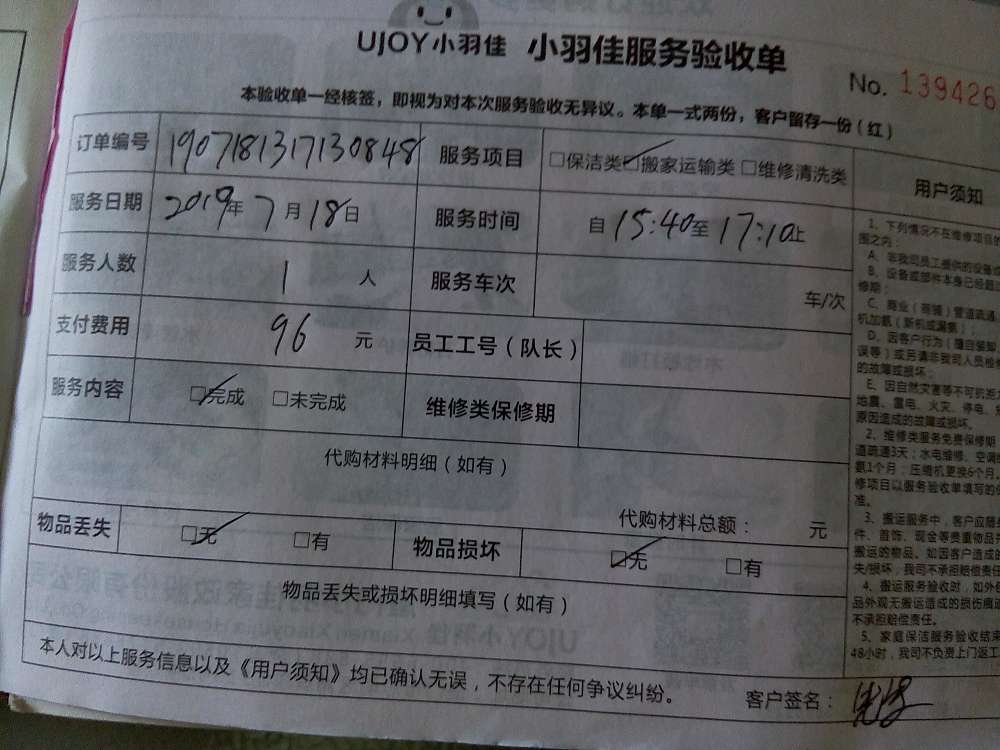 UJOY小羽佳 小羽佳服务验收单
No. 139426
本验收单一经核签，即视为对本次服务验收无异议。本单一式两份，客户留存一份（红）
订单编号 1907181317130848 服务项目 □保洁类 ☑搬家运输类 □维修清洗类
服务日期 2019年7月18日 服务时间 自15:40至17:10止
服务人数 1 人 服务车次 车/次
支付费用 96 元 员工工号（队长）
服务内容 ☑完成 □未完成 维修类保修期
代购材料明细（如有）
代购材料总额： 元
物品丢失 ☑无 □有 物品损坏 ☑无 □有
物品丢失或损坏明细填写（如有）
本人对以上服务信息以及《用户须知》均已确认无误，不存在任何争议纠纷。
客户签名：
用户须知
1、下列情况不在维修项目
围之内：
A、非我司员工提供的设备
B、设备或部件本身已经超
修期；
C、商业（商铺）管道疏通、
机加氨（新机或漏氨）；
D、因客户行为（擅自装卸、
误等）或另请非我司人员检
的故障或损坏；
E、因自然灾害等不可抗
地震、雷电、火灾、停电、
原因造成的故障或损坏。
2、维修类服务免费保修期
道疏通3天；水电维修、空调
氨1个月；压缩机更换6个月。
修项目以服务验收单填写的
准。
3、搬运服务中，客户应随
件、首饰、现金等贵重物品
搬运的物品。如因客户造成
失/损坏，我司不承担赔偿责任
4、搬运服务验收时，如外
品外观无搬运造成的损伤痕
不承担赔偿责任。
5、家庭保洁服务验收结束
48小时，我司不负责上门返工